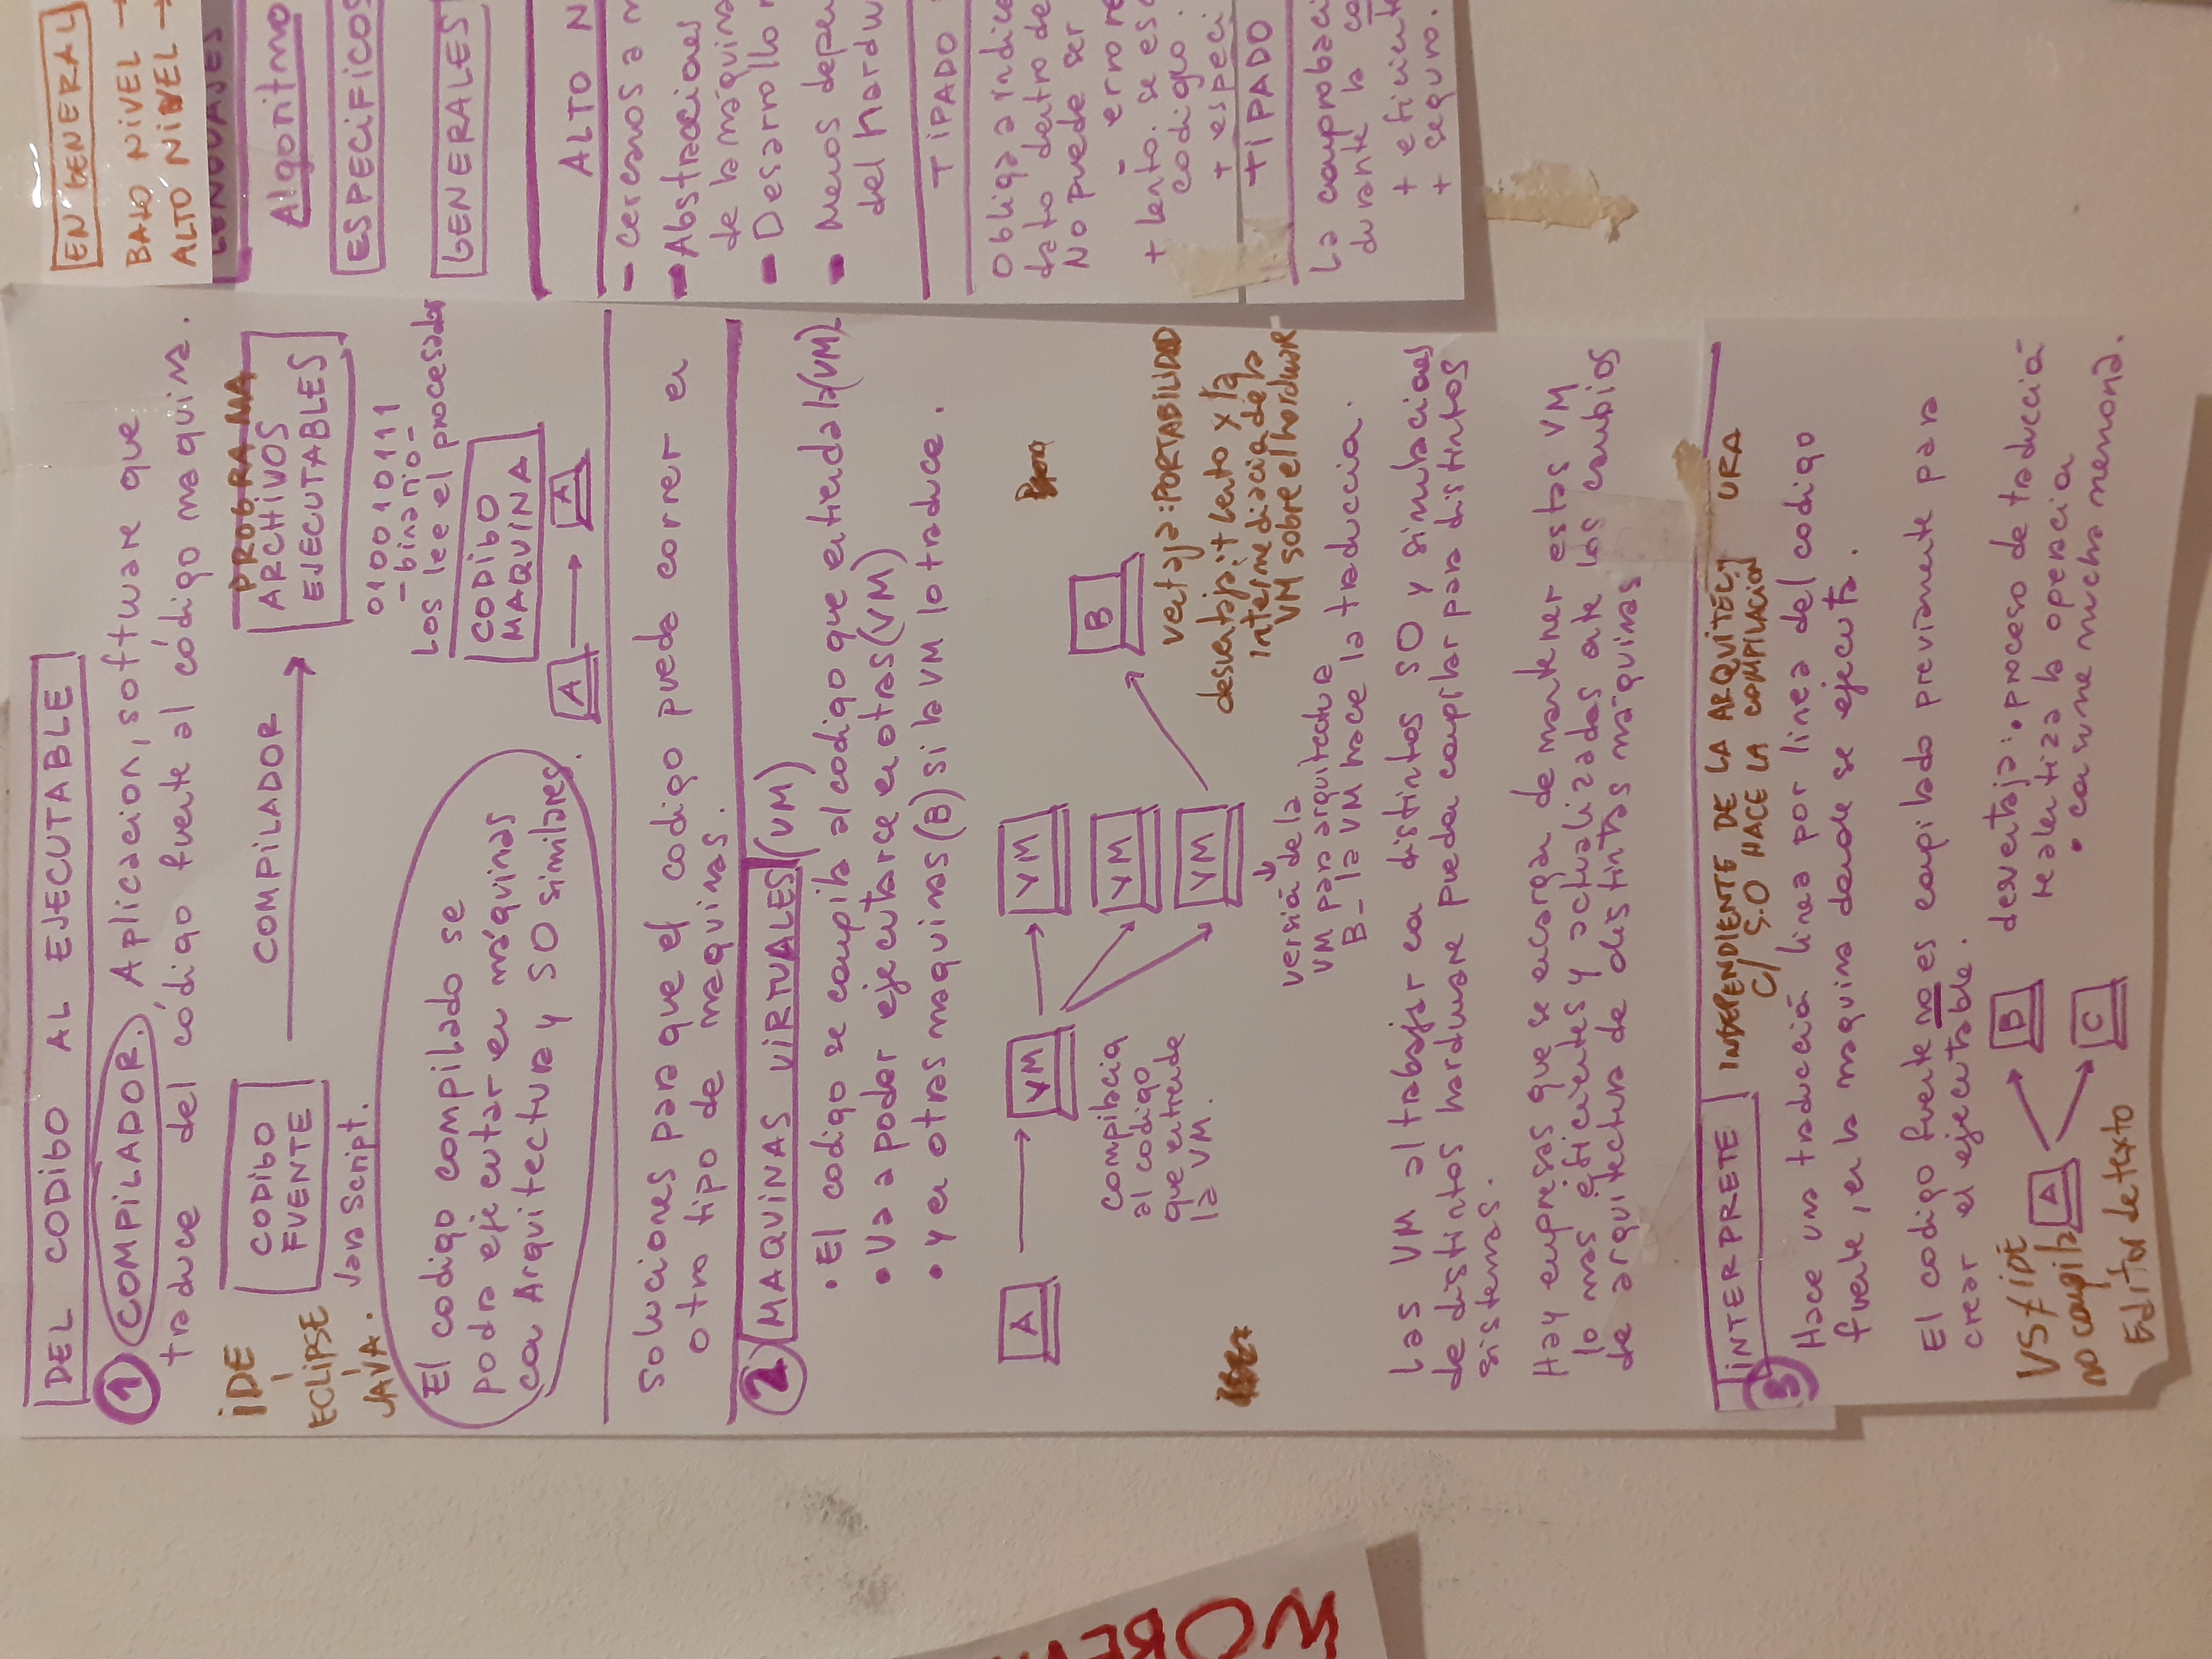 DEL CODIGO AL EJECUTABLE
1 COMPILADOR. Aplicacion, software que
traduce del código fuente al código maquina.
IDE
ECLIPSE
JAVA.
CODIGO
FUENTE
Java Script.
COMPILADOR
PROGRAMA
ARCHIVOS
EJECUTABLES
010010111
-binario-
Los lee el procesador
CODIGO
MAQUINA
A
A
El codigo compilado se
podra ejecutar en máquinas
con Arquitectura y SO similares.
Soluciones para que el codigo pueda correr en
otro tipo de maquinas.
2 MAQUINAS VIRTUALES (VM)
• El codigo se compila al codigo que entienda la (VM).
• Va a poder ejecutarce en otras (VM)
• y en otras maquinas (B) si la VM lo traduce.
A
VM
VM
VM
VM
B
compilacion
al codigo
que entiende
la VM.
ventaja: PORTABILIDAD
desventaja: + lento x la
intermediacion de la
VM sobre el hardware
versión de la
VM para arquitectura
B- la VM hace la traduccion.
Las VM al trabajar con distintos SO y simulaciones
de distintos hardware pueden compilar para distintos
sistemas.
Hay empresas que se encargan de mantener estas VM
lo mas eficientes y actualizadas ante los cambios
de arquitectura de distintas máquinas
3 INTERPRETE
INDEPENDIENTE DE LA ARQUITECTURA
C/ S.O HACE LA COMPILACIÓN
Hace una traducción linea por linea del codigo
fuente, en la maquina donde se ejecuta.
El codigo fuente no es compilado previamente para
crear el ejecutable.
VS ≠ IDE
no compila
Editor de texto
A
B
C
desventaja: • proceso de traducción
realentiza la operacion
• consume mucha memoria.
EN GENERAL
BAJO NIVEL →
ALTO NIVEL →
LENGUAJES
Algoritmo
ESPECIFICOS
GENERALES
ALTO N
- cercanos a m
- Abstracciones
de la máquina
- Desarrollo
- Menos depen
del hardw
TIPADO
Obliga a indica
dato dentro de
No puede ser
- errore
+ lento. se es
codigo.
+ especi
TIPADO
La comprobaci
durante la co
+ eficiente
+ seguro.